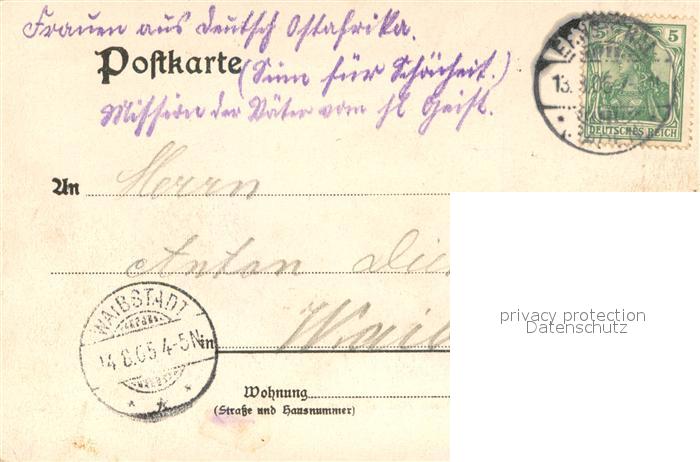 Frauen aus Deutsch Ostafrika.
Postkarte (Sinn für Schönheit.)
Mission der Väter vom hl Geist.
5
13.
DEUTSCHES REICH
An Herrn
Anton
WAIBSTADT
14 8.05 4-5N
in
Wohnung
(Straße und Hausnummer)
privacy protection
Datenschutz